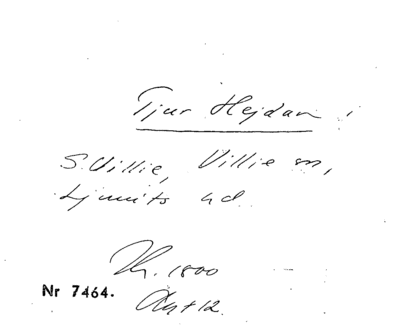 Tjur Hejdan
S. Villie, Villie sn,
Ljunits hd
Kr. 1800
Nr 7464.